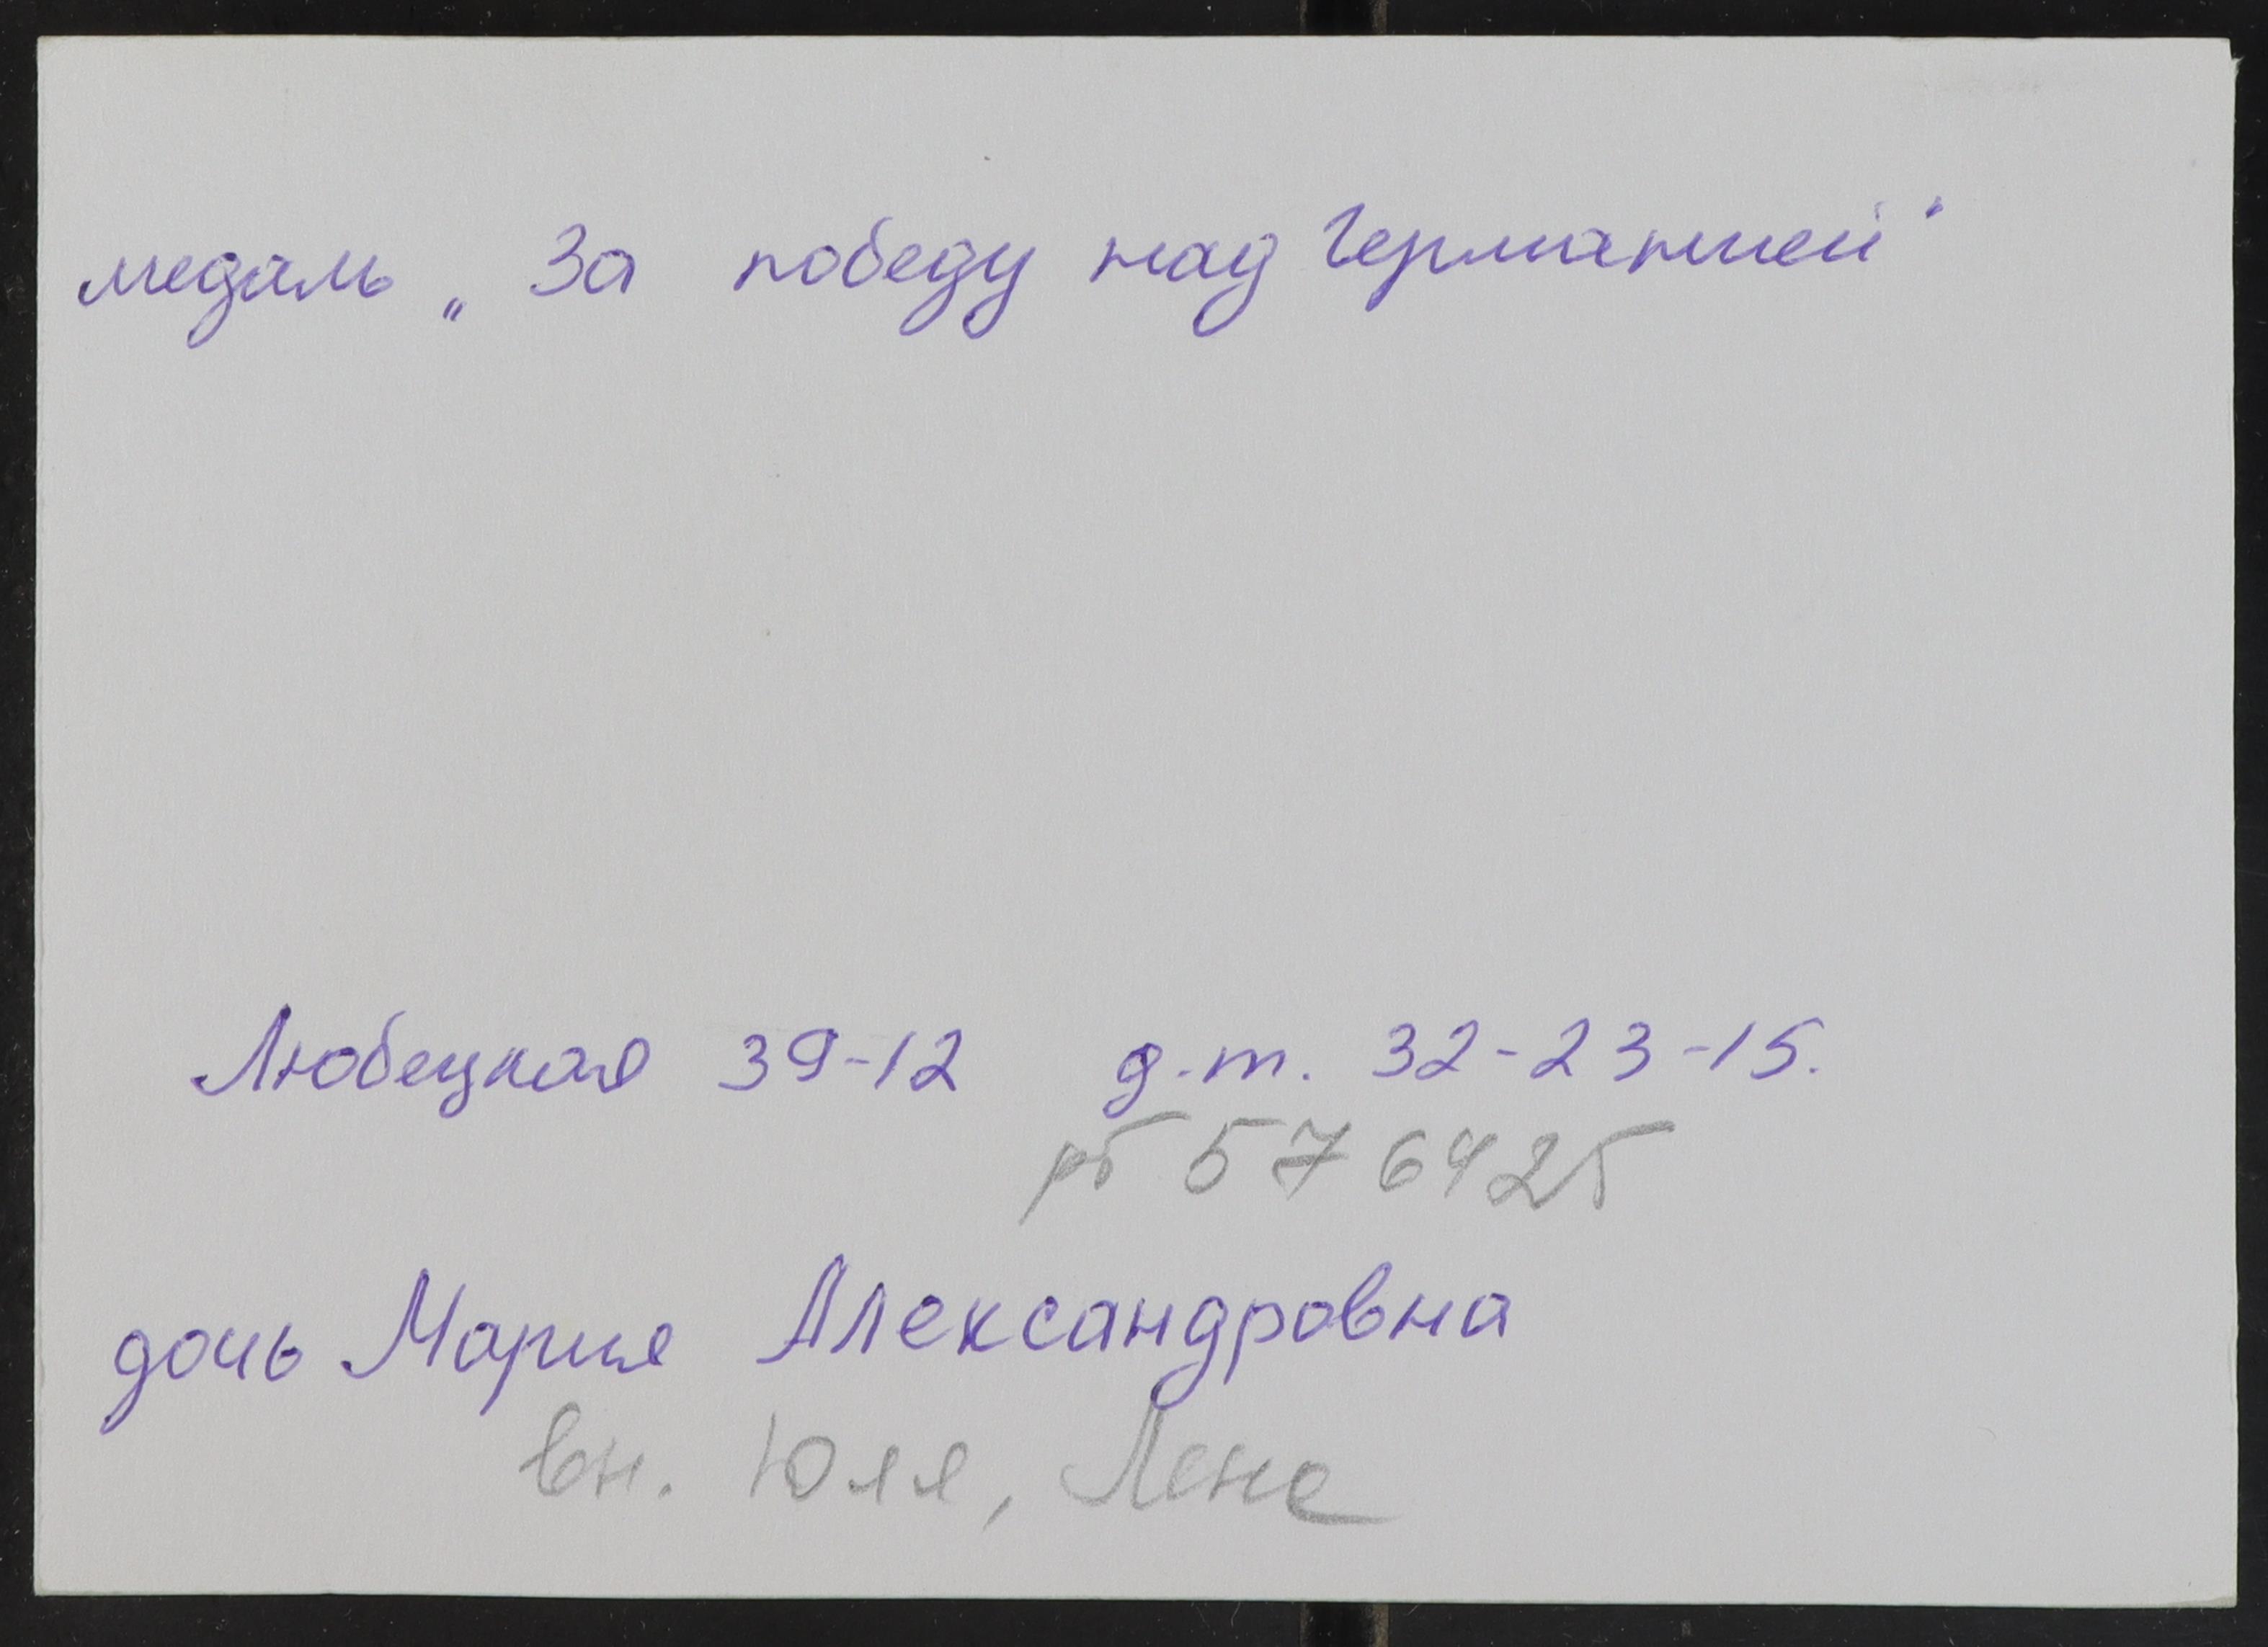 медаль „За победу над Германией"
Любецкая 39-12 д.т. 32-23-15.
рб 576425
дочь Мария Александровна
вн. Юля, Лена